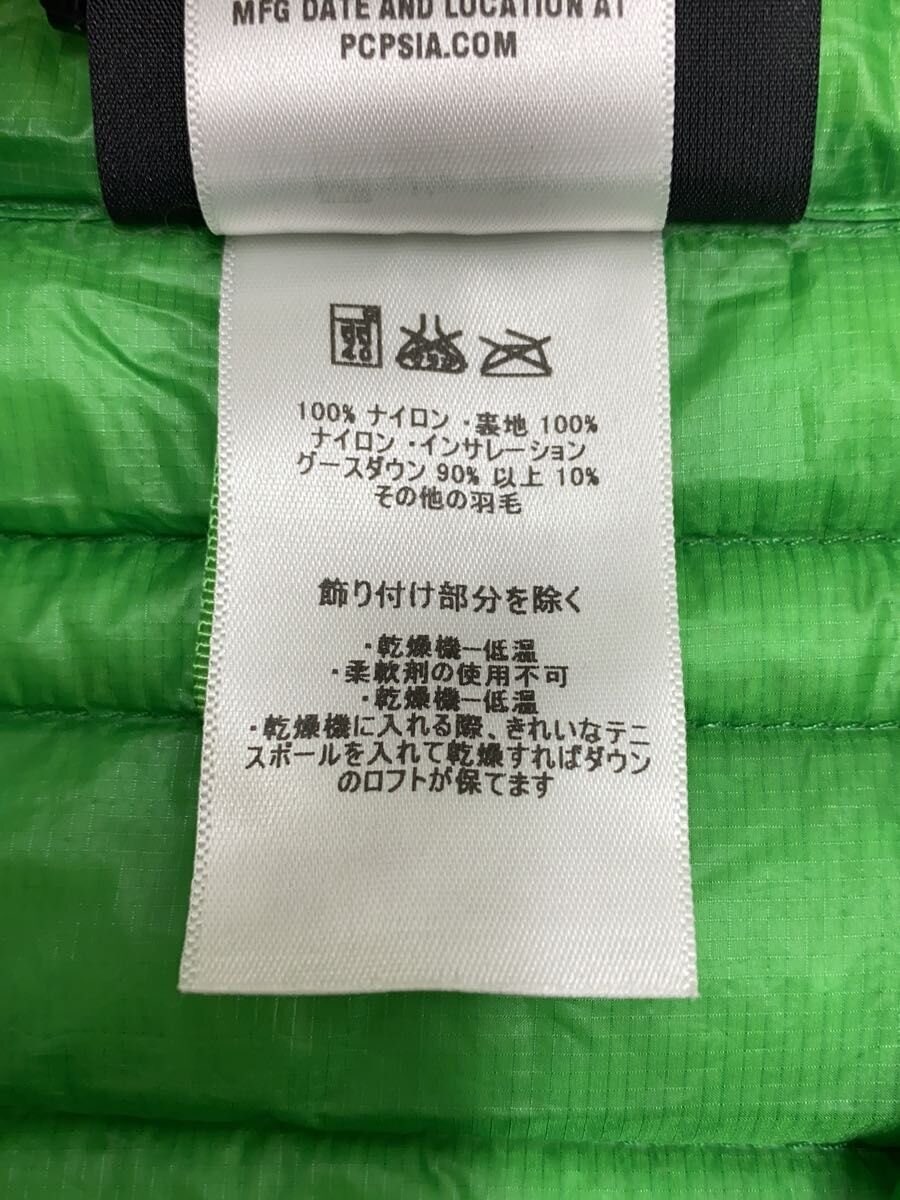 MFG DATE AND LOCATION AT
PCPSIA.COM
100% ナイロン ・裏地 100%
ナイロン ・インサレーション
グースダウン 90% 以上 10%
その他の羽毛
飾り付け部分を除く
・乾燥機ー低温
・柔軟剤の使用不可
・乾燥機ー低温
・乾燥機に入れる際、きれいなテニ
スボールを入れて乾燥すればダウン
のロフトが保てます